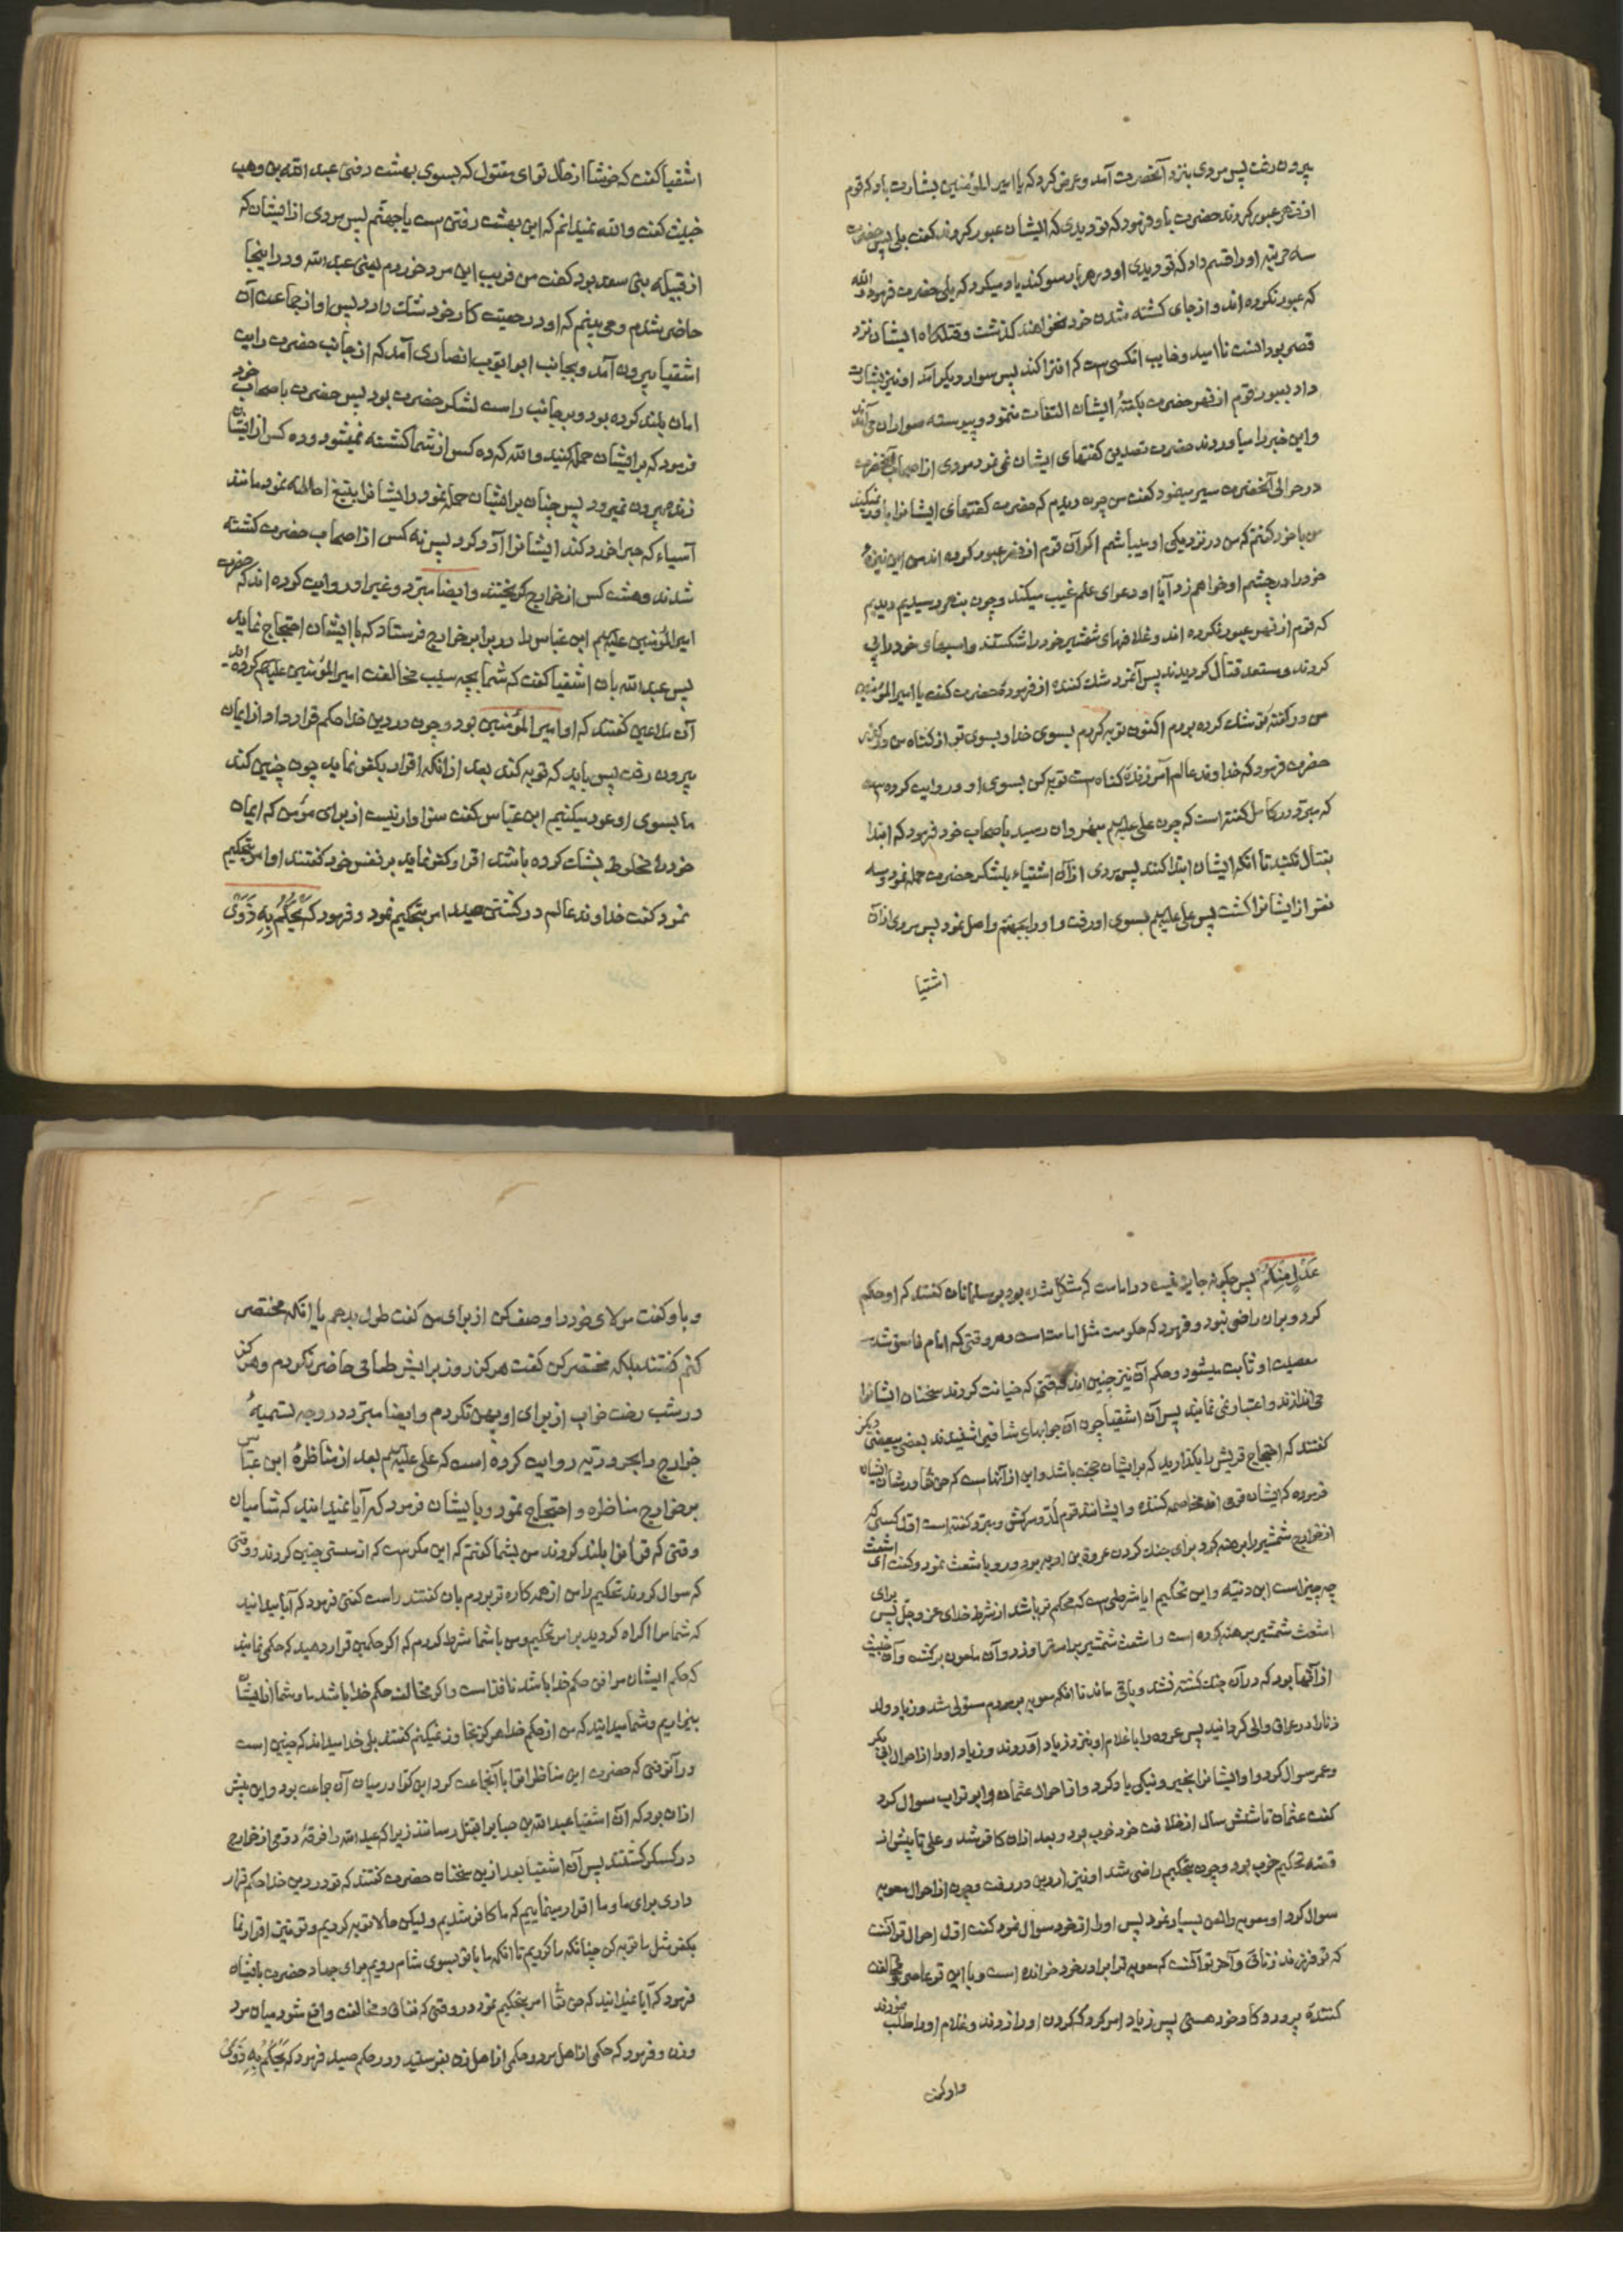 بیرون رفت پس مردی بنزد آنحضرت آمد و عرض کرد که یا امیر المؤمنین بشارت باد که قوم
از نهر عبور کردند حضرت باو فرمود که تو دیدی که ایشان عبور کردند گفت بلی پس حضرت
سه مرتبه او را قسم داد که تو دیدی او در هر بار سوگند یاد میکرد که بلی حضرت فرمود والله
که عبور نکرده اند و از جای کشته شدن خود نخواهند گذشت و قتلگاه ایشان نزد
قصر بوران است ناامید و خایب انکسی است که افترا کند پس سوار دیگر آمد او نیز بشارت
داد بعبور قوم از نهر حضرت بگفتهٔ ایشان التفات ننمود و پیوسته سواران می آمدند
و این خبر را میاوردند حضرت تصدیق گفتهای ایشان نمی نمود مردی از اصحاب آنحضرت
در حوالی آنحضرت سیر مینمود گفت من چون دیدم که حضرت گفتهای ایشانرا باور نمیکند
من با خود گفتم که من در نزدیکی او میباشم اگر آن قوم از نهر عبور کرده اند من این نیزهٔ
خود را در چشم او خواهم زد آیا او دعوای علم غیب میکند و چون بنهر رسیدیم دیدیم
که قوم از نهر عبور نکرده اند و غلافهای شمشیر خود را شکستند و اسبهای خود را پی
کردند و مستعد قتال گردیدند پس آنمرد شک کننده از فرمودهٔ حضرت گفت یا امیر المؤمنین
من در گفته تو شک کرده بودم اکنون توبه کردم بسوی خدا و بسوی تو از گناه من درگذر
حضرت فرمود که خداوند عالم آمرزندهٔ گناه است توبه کن بسوی او و روایت کرده است
که مبرد در کامل گفته است که چون علی علیه السلم بنهروان رسید باصحاب خود فرمود که ابتدا
بقتال نکنید تا انکه ایشان ابتدا کنند پس مردی از آن اشقیاء بلشکر حضرت حمله نمود و سه
نفر از ایشانرا کشت پس علی علیه السلم بسوی او رفت و او را بجهنم واصل نمود پس مردی از آن
اشقیا
اشقیا گفت که خوشا از حال تو ای مقتول که بسوی بهشت رفتی عبد الله بن وهب
خبیث گفت والله نمیدانم که این بهشت رفتن است یا جهنم پس مردی از ایشان که
از قبیله بنی سعد بود گفت من فریب این مرد خوردم یعنی عبد الله و در اینجا
حاضر شدم و می بینم که او در حقیت کار خود شک دارد پس او از جماعت آن
اشقیا بیرون آمد و بجانب ابو ایوب انصاری آمد که از جانب حضرت رایت
امان بلند کرده بود و بر جانب راست لشکر حضرت بود پس حضرت باصحاب خود
فرمود که بر ایشان حمله کنید والله که ده کس از شما کشته نمیشود و ده کس از ایشان
زنده بیرون نمیرود پس چنان بر ایشان حمله نمود و ایشانرا بتیغ احاطه نمود مانند
آسیاء که حبرا خرد کند ایشانرا آرد کرد پس نه کس از اصحاب حضرت کشته
شدند و هشت کس از خوارج گریختند و ایضا مبرد و غیر او روایت کرده اند که حضرت
امیر المؤمنین علیه السلم ابن عباس را در برابر خوارج فرستاد که با ایشان احتجاج نماید
پس عبد الله بان اشقیا گفت که شما بچه سبب مخالفت امیر المؤمنین علیه السلم کرده اید
آن ملاعین گفتند که او امیر المؤمنین بود و چون در دین خدا حکم قرار داد از ایمان
بیرون رفت پس باید که توبه کند بعد از انکه اقرار بکفر نماید چون چنین کند
ما بسوی او عود میکنیم ابن عباس گفت سزاوار نیست از برای مؤمن که ایمان
خود را مخلوط بشک نکرده باشد اقرار بکفر نماید بر نفس خود گفتند او امر بتحکیم
نمود گفت خداوند عالم در کشتن صید امر بتحکیم نمود و فرمود که يَحْكُمُ بِهِ ذَوَىْ
عَدْلٍ مِنْكُمْ پس چگونه جایز نیست در امامت که مشکل شده بود بر مسلمانان گفتند که او حکم
کرد و بران راضی نبود و فرمود که حکومت مثل امامت است و هر وقتی که امام فاسق شد
معصیت او ثابت میشود و حکم آن نیز چنین اند وقتی که خیانت کردند سخنان ایشانرا
می اندازند و اعتبار نمی نمایند پس آن اشقیا چون آن جوابهای شافی را شنیدند بعضی ببعضی دیگر
گفتند که احتجاج قریش را بگذارید که بر ایشان حجت باشد و این از آنها است که حق تعالی در شان ایشان
فرموده که ایشان قومی اند مخاصمه کننده و ایشانند قوم لُدّ و سرکش و مبرد گفته است اول کسی که
از خوارج شمشیر را برهنه کرد برای جنگ کردن عروة بن ادیه بود و رو باشعث نمود و گفت ای اشعث
چه چیز است این دنیّه و این تحکیم ایا شرطی است که محکم تر باشد از شرط خدای عز و جل پس برای
اشعث شمشیر برهنه کرده است و اشعث شمشیر بر استر او زد و آن ملعون برگشت و آن خبیث
از آنها بود که در آن جنگ کشته نشد و باقی ماند تا انکه معویه بر مردم مستولی شد و زیاد ولد
زنا را در عراق والی گردانید پس عروه را با غلام او بنزد زیاد آوردند و زیاد او را از احوال ابی بکر
و عمر سوال کرد و او ایشانرا بخیر و نیکی یاد کرد و از احوال عثمان و ابو تراب سوال کرد
گفت عثمان تا شش سال از خلافت خود خوب بود و بعد ازان کافر شد و علی تا پیش از
قصه تحکیم خوب بود و چون بتحکیم راضی شد او نیز از دین در رفت و چون از احوال معویه
سوال کرد او معویه را لعن بسیار نمود پس او را از خود سوال نمود گفت اول احوال تو آنست
که تو فرزند زنائی و آخر تو آنست که معویه ترا برادر خود خوانده است و با این تو عاصی و مخالفت
کنندهٔ پروردکار خود هستی پس زیاد امر کرد که گردن او را زدند و غلام او را طلب نمودند
و او گفت
و باو گفت مولای خود را وصف کن از برای من گفت طول بدهم یا انکه مختصر
کنم گفتند بلکه مختصر کن گفت هرگز روز برایش طعامی حاضر نکردم و هرگز
در شب رخت خواب از برای او پهن نکردم و ایضا مبرد در وجه تسمیهٔ
خوارج را بحروریه روایت کرده است که علی علیه السلم بعد از مناظرهٔ ابن عباس
بر خوارج مناظره و احتجاج نمود و بایشان فرمود که آیا نمیدانید که شامیان
وقتی که قرآنرا بلند کردند من بشما گفتم که این مکر است که از سستی چنین کردند و وقتی
که سوال کردند تحکیم را من از همه کاره تر بودم بان گفتند راست گفتی فرمود که آیا میدانید
که شما مرا اکراه کردید بر امر تحکیم و من با شما شرط کردم که اگر حکمین قرار دهید که حکمی نمایند
که حکم ایشان موافق حکم خدا باشد نافذ است و اگر مخالفت حکم خدا باشد ما و شما از ایشان
بیزاریم و شما میدانید که من از حکم خدا هرگز تجاوز نمیکنم گفتند بلی خدا میداند که چنین است
و در آنوقتی که حضرت این مناظرات را با آنجماعت کرد ابن کوا در میان آن جماعت بود و این پیش
ازان بود که آن اشقیا عبد الله بن خباب را بقتل رسانند زیرا که عبد الله را فرقهٔ دومی از خوارج
در کسکر کشتند پس آن اشقیا بعد ازین سخنان حضرت گفتند که تو در دین خدا حکم قرار
دادی برای ما و ما اقرار مینماییم که ما کافر شدیم ولیکن حالا توبه کردیم و تو نیز اقرار نما
بکفر مثل ما توبه کن چنانکه ما کردیم تا انکه ما با تو بسوی شام رویم برای جهاد حضرت بایشان
فرمود که آیا نمیدانید که حق تعالی امر بتحکیم نمود در وقتی که نفاق و مخالفت واقع شود میان مرد
و زن و فرمود که حکمی از اهل مرد و حکمی از اهل زن بفرستید و در حکم صید فرمود که يَحْكُمُ بِهِ ذَوَىْ